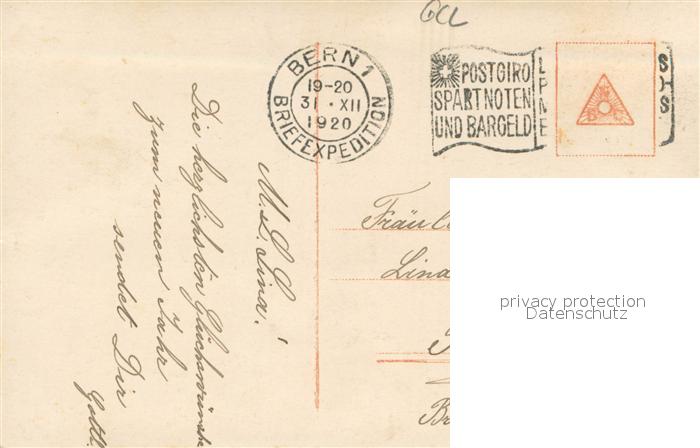 GCL
BERN 1
19-20
31·XII
1920
BRIEFEXPEDITION
POSTGIRO
SPART NOTEN
UND BARGELD
M. L. Lina!
Die herzlichsten Glückwünsche
zum neuen Jahr
sendet Dir
Gottl.
Fräul
Lina
privacy protection
Datenschutz